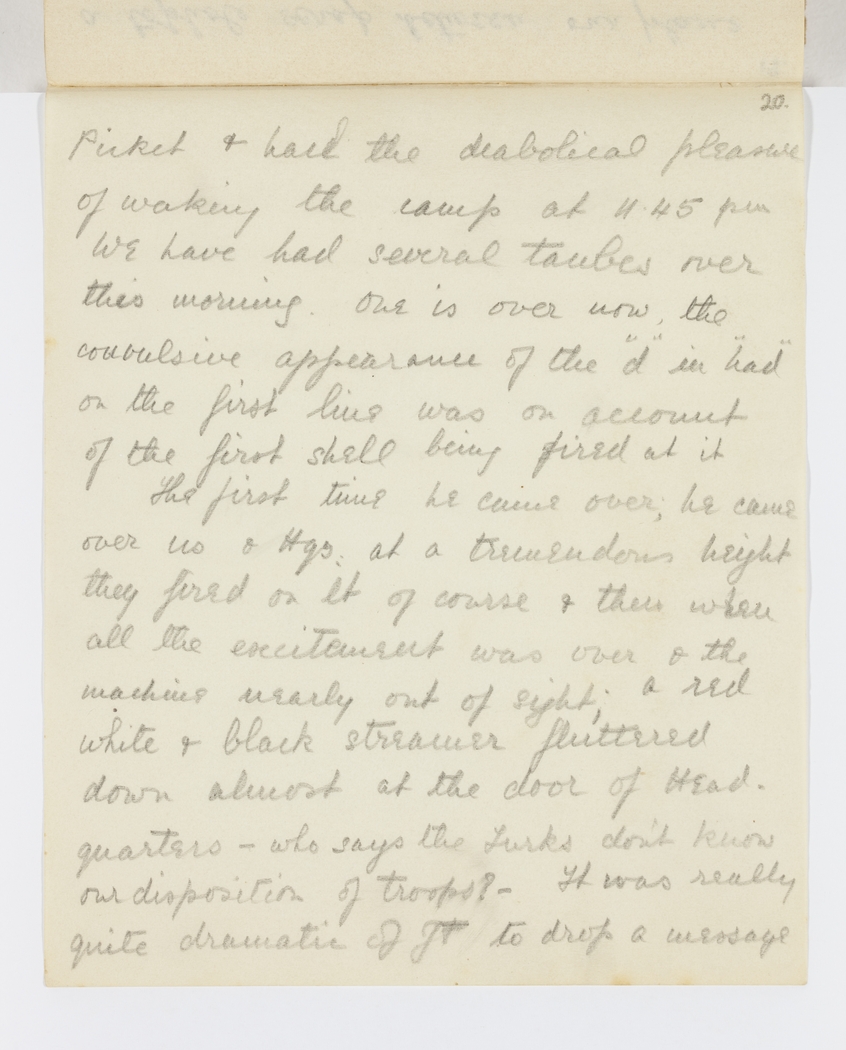 20.
Picket & had the diabolical pleasure
of waking the camp at 11.45 pm
We have had several taubes over
this morning. One is over now, the
convulsive appearance of the "d" in "had"
on the first line was on account
of the first shell being fired at it
The first time he came over, he came
over us & Hqs. at a tremendous height
they fired on it of course & then when
all the excitement was over & the
machine nearly out of sight; a red
white & black streamer fluttered
down almost at the door of Head-
quarters – who says the Turks don't know
our disposition of troops? – It was really
quite dramatic of to drop a message